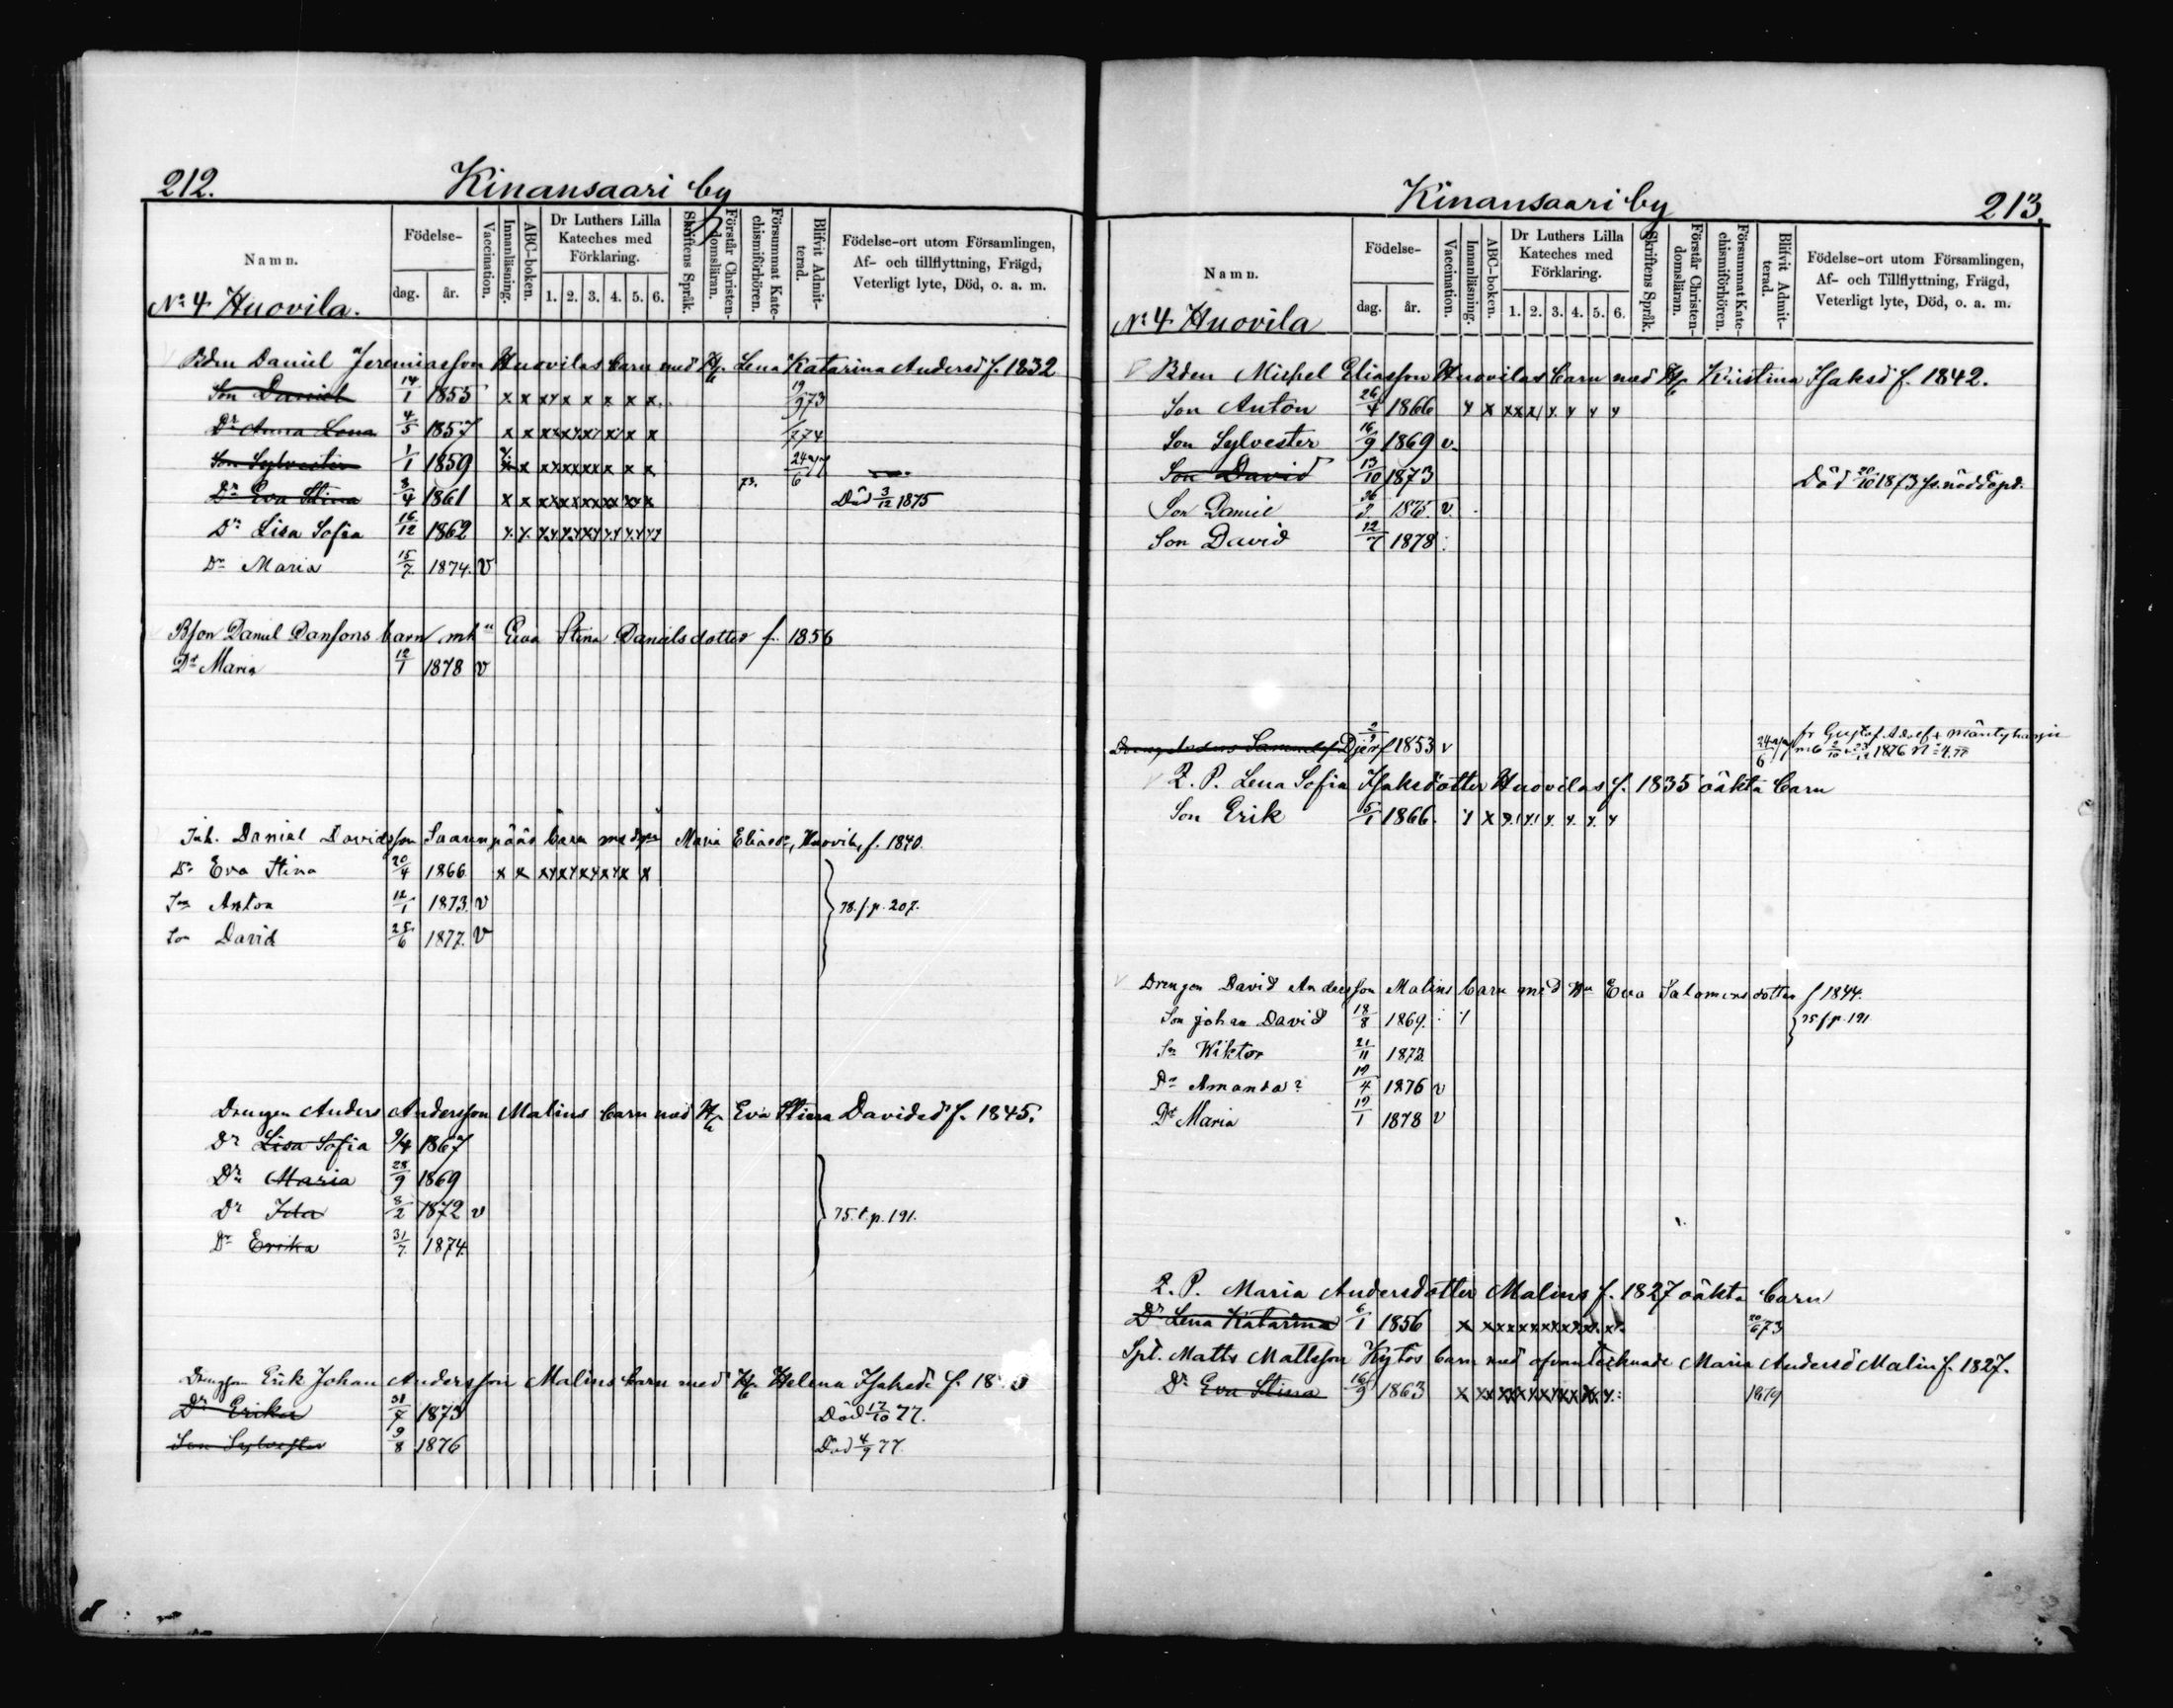 212.
Kinansaari by
Namn.
Födelse-
dag.
år.
Vaccination.
Innanläsning.
ABC-boken.
Dr Luthers Lilla
Kateches med
Förklaring.
1. 2. 3. 4. 5. 6.
Skriftens Språk.
Förstår Christen-
domsläran.
Försummat Kate-
chismiförhören.
Blifvit Admit-
terad.
Födelse-ort utom Församlingen,
Af- och tillflyttning, Frägd,
Veterligt lyte, Död, o. a. m.
No 4 Huovila.
Bden Daniel Jeremiasson Huovilas barn med Lena Katarina Andersd f. 1832
Son Daniel 14/1 1855 x x xx x x x x x 19/9 73
Dr Anna Lena 4/5 1857 x x 74
Son Sylvester 1/1 1859 24/6
Dr Eva Stina 8/4 1861 x x 73. Död 3/12 1875
Dr Lisa Sofia 16/12 1862
Dr Maria 15/7 1874. v
Bson Daniel Dansons barn mh Eva Stina Danielsdotter f. 1856
Dt Maria 12/1 1878 v
Inh. Daniel Davidsson Saarenpääs barn med Maria Eliasd, Huovila, f. 1840.
Dr Eva Stina 20/4 1866 x x
Son Anton 12/1 1873. v 78. f. p. 207.
Son David 25/6 1877. v
Drengen Anders Andersson Malins barn med Eva Stina Davidsd f. 1845.
Dr Lisa Sofia 9/4 1867
Dr Maria 28/9 1869
Dr Ida 8/2 1872 v 75. t. p. 191.
Dr Erika 31/7 1874
Erik Johan Andersson Malins barn med Helena Isaksd f.
Dr Erika 31/7 1873 Död 17/10 77.
Son Sylvester 9/8 1876 Död 4/9 77.
Kinansaari by
213.
Namn.
Födelse-
dag.
år.
Vaccination.
Innanläsning.
ABC-boken.
Dr Luthers Lilla
Kateches med
Förklaring.
1. 2. 3. 4. 5. 6.
Skriftens Språk.
Förstår Christen-
domsläran.
Försummat Kate-
chismiförhören.
Blifvit Admit-
terad.
Födelse-ort utom Församlingen,
Af- och Tillflyttning, Frägd,
Veterligt lyte, Död, o. a. m.
No 4 Huovila
Bden Michel Eliasson Huovilas barn med Kristina Isaksd f. 1842.
Son Anton 26/4 1866
Son Sylvester 16/9 1869 v.
Son David 13/10 1873 Död 20/10 1873 nöddöpt.
Son Daniel 1875. v.
Son David 12/7 1878
Dreng Anders Samuelsson Djerf 1853 v 24/6 fr Gustaf Adolf
1876
Q. P. Lena Sofia Isaksdotter Huovilas f. 1835 oäkta barn
Son Erik 5/1 1866.
Drengen David Andersson Malins barn med Eva Salomonsdotter f 1844.
Son Johan David 18/8 1869. 75 f p. 191
Sn Wiktor 21/11 1873
Dr Amanda? 19/4 1876 v
Dt Maria 19/1 1878 v
Q. P. Maria Andersdotter Malins f. 1827 oäkta barn
Dr Lena Katarina 6/1 1856 20/6 73
Spt. Matts Mattsson Kytös barn med ofvantecknade Maria Andersd Malin f. 1827.
Dr Eva Stina 16/9 1863 1879